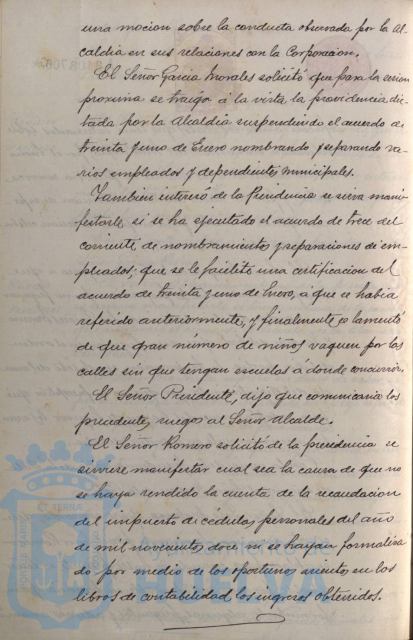 una mocion sobre la conducta observada por la Al-
caldia en sus relaciones con la Corporacion.
El Señor Garcia Morales solicitó que para la sesion
proxima se traiga á la vista, la providencia dic-
tada por la Alcaldia suspendiendo el acuerdo de
treinta y uno de Enero nombrando y separando va-
rios empleados y dependientes municipales.
Tambien interesó de la Presidencia se sirva mani-
festarle si se ha ejecutado el acuerdo de trece del
corriente de nombramientos y separaciones de em-
pleados; que se le facilite una certificacion del
acuerdo de treinta y uno de Enero, á que se habia
referido anteriormente, y finalmente se lamentó
de que gran número de niños vaguen por las
calles sin que tengan escuelas á donde concurrir.
El Señor Presidente, dijo que comunicaria los
precedentes ruegos al Señor Alcalde.
El Señor Romero solicitó de la presidencia se
sirviese manifestar cual sea la causa de que no
se haya rendido la cuenta de la recaudacion
del impuesto de cédulas personales del año
de mil novecientos doce, ni se hayan formaliza-
do por medio de los oportunos asientos en los
libros de contabilidad los ingresos obtenidos.